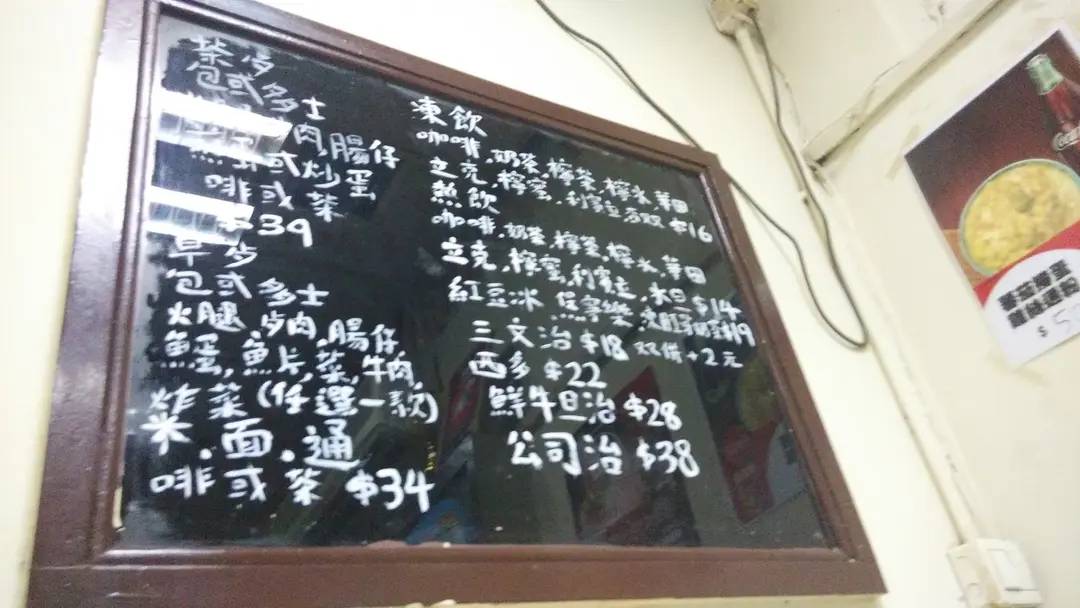 茶歺
包或多士
肉,腸仔
或炒蛋
啡或茶
$39
早歺
包或多士
火腿,歺肉,腸仔
魚蛋,魚片,菜,牛肉,
炸菜(任選一款)
米.面.通
啡或茶 $34
凍飲
咖啡,奶茶,檸茶,檸水,華田
立克,檸蜜,利賓 $16
熱飲
咖啡,奶茶,檸茶,檸水,華田
立克,檸蜜,利賓 $14
紅豆冰 $19
三文治 $18 双併+2元
西多 $22
鮮牛旦治 $28
公司治 $38
$